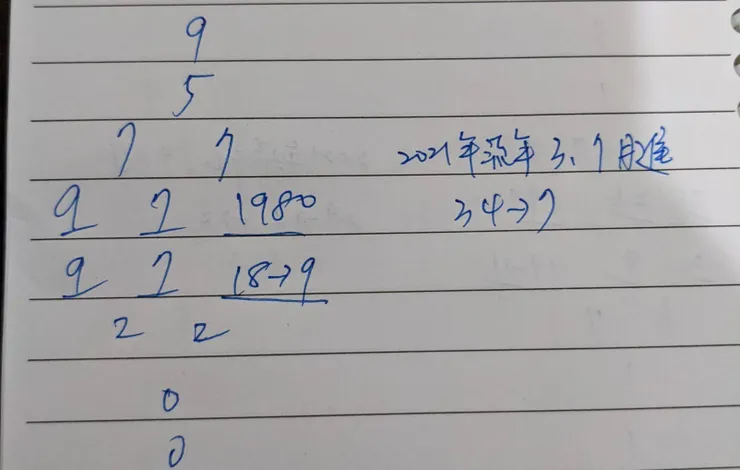 9
5
7 7 2021年流年3、7月進
9 7 1980 34→7
9 7 18→9
2 2
0
0